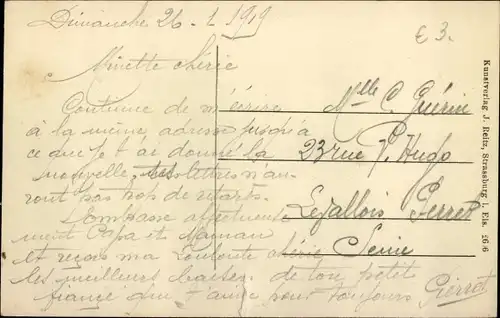 Dimanche 26-1 1919
€ 3.
Minette chérie
Continue de m'écrire
à la même adresse jusqu'à
ce que je t'ai donné la
nouvelle, tes lettres n'au-
ront pas trop de retards.
J'embrasse affectueuse
ment Papa et Maman
et reçois ma Louloute chérie
les meilleurs baisers de ton petit
fiancé qui t'aime pour toujours
Pierrot
Mlle C. Guérin
23 rue V. Hugo
Levallois Perret
Seine
Kunstverlag J. Reitz, Strassburg i. Els. 26/6